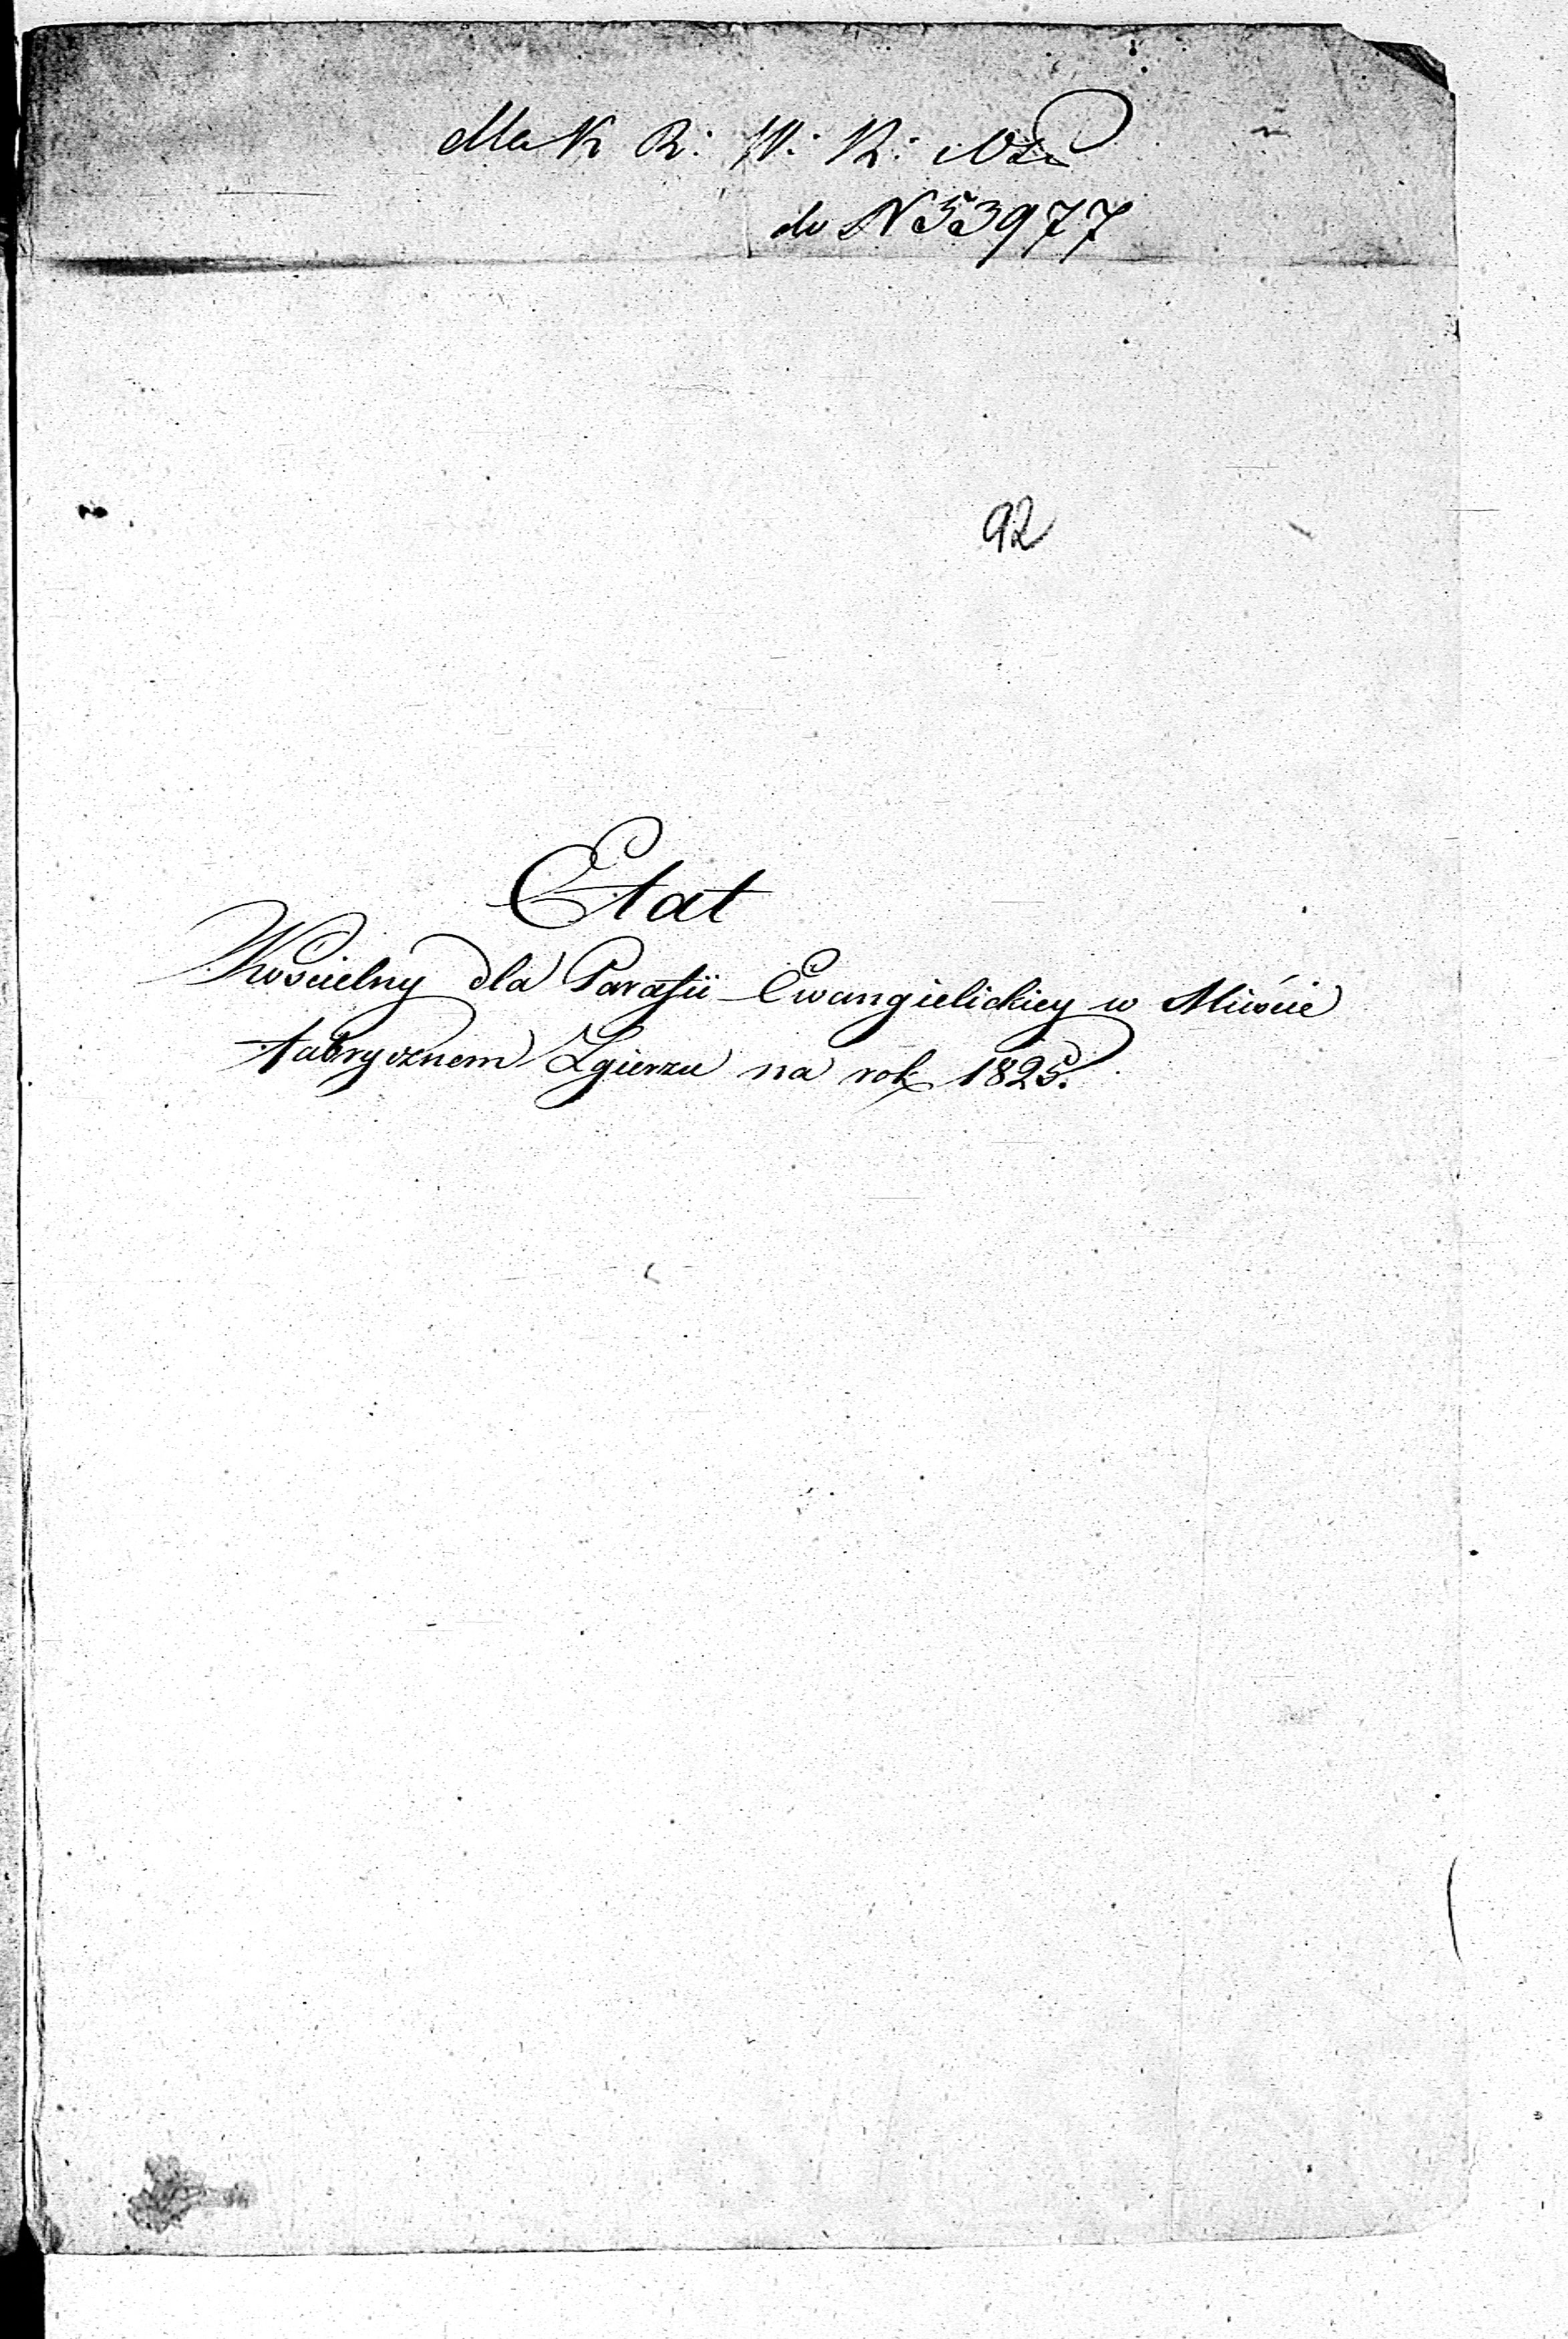 do N 53977
92
Etat
Kościelny dla Parafii Ewangielickiey w Mieście
fabrycznem Zgierzu na rok 1825.